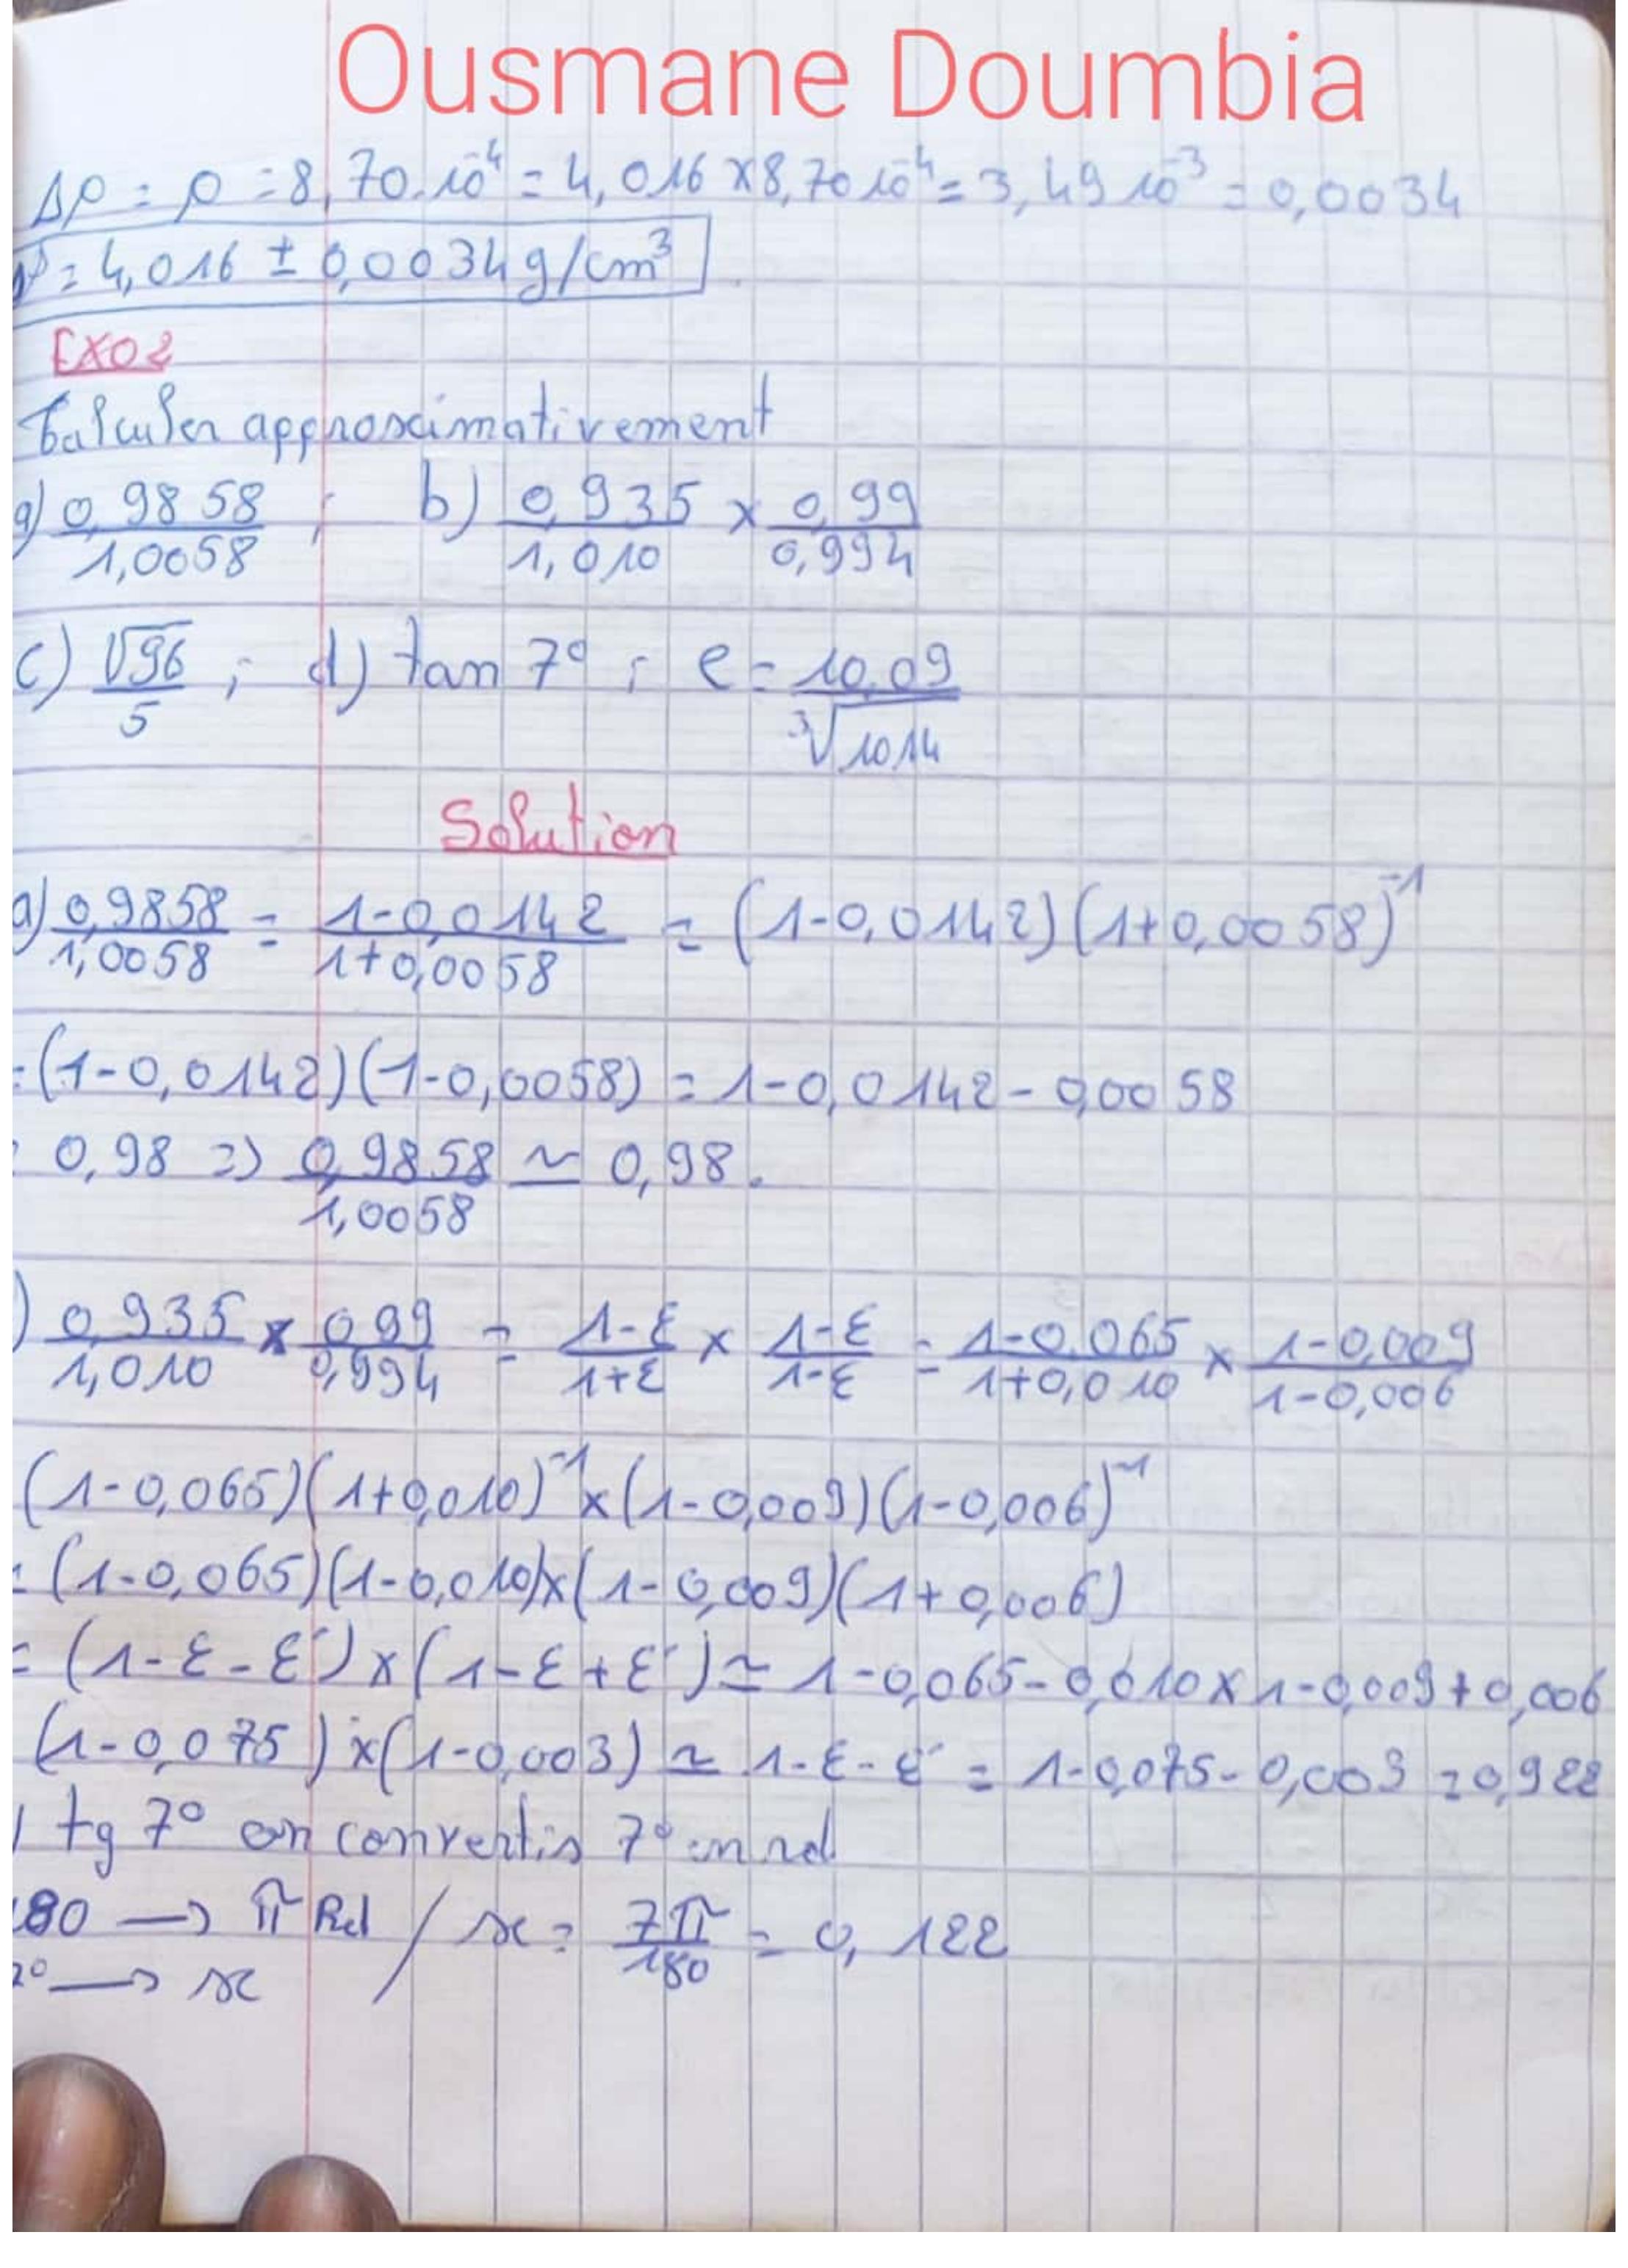 Ousmane Doumbia
Δρ = ρ = 8,70.10⁻⁴ = 4,016 x 8,70 10⁻⁴ = 3,49 10⁻³ = 0,0034
= 4,016 ± 0,0034 g/cm³
EXO2
Calculer approximativement
a) 0,9858/1,0058 ; b) 0,935/1,010 x 0,99/0,994
c) √96/5 ; d) tan 7° ; e = 10,09/∛1014
Solution
a) 0,9858/1,0058 = 1-0,0142/1+0,0058 = (1-0,0142)(1+0,0058)⁻¹
=(1-0,0142)(1-0,0058) = 1-0,0142-0,0058
= 0,98 => 0,9858/1,0058 ≃ 0,98.
) 0,935/1,010 x 0,99/0,994 = 1-ε/1+ε x 1-ε/1-ε = 1-0,065/1+0,010 x 1-0,009/1-0,006
(1-0,065)(1+0,010)⁻¹x(1-0,009)(1-0,006)⁻¹
= (1-0,065)(1-0,010)x(1-0,009)(1+0,006)
= (1-ε-ε')x(1-ε+ε') ≃ 1-0,065-0,010x1-0,009+0,006
(1-0,075)x(1-0,003) ≃ 1-ε-ε' = 1-0,075-0,003 = 0,922
) tg 7° on convertis 7° en rd
180 → π Rd / x = 7π/180 = 0,122
7° → x